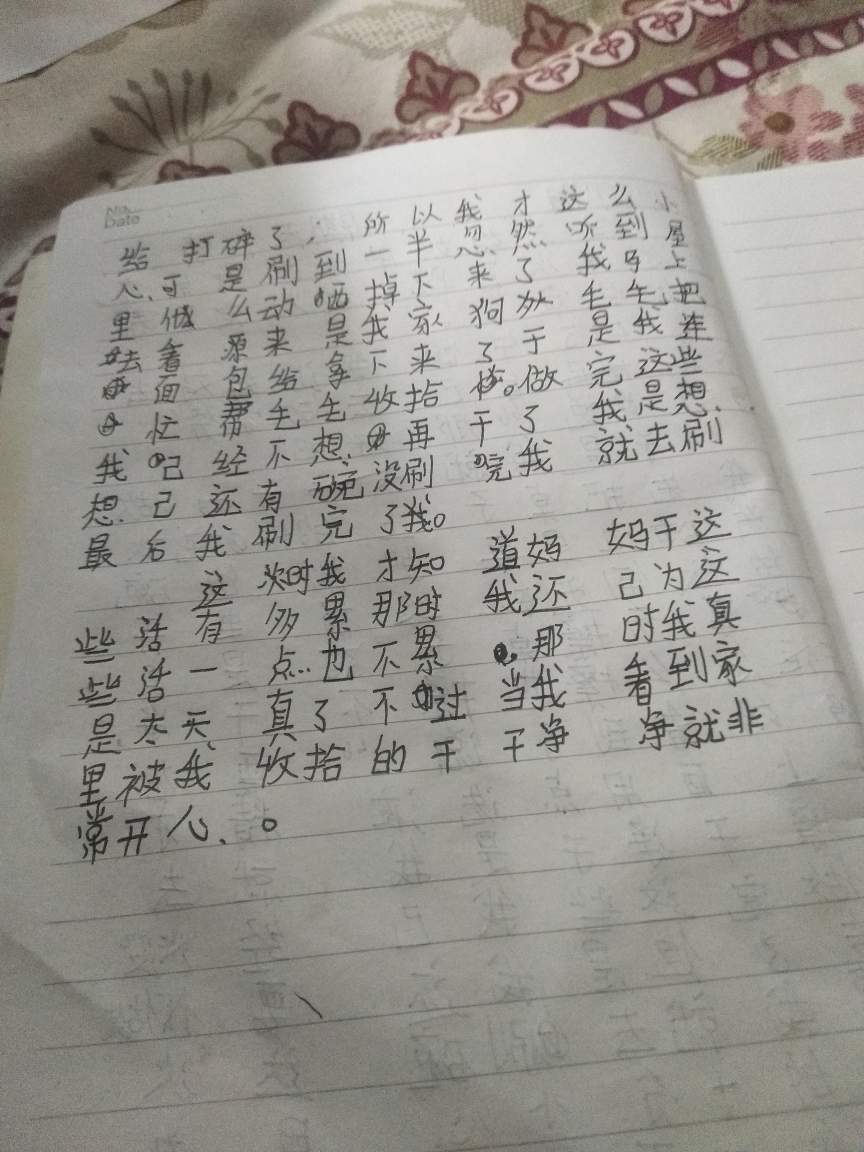 No.
Date
给打碎了,所以我才这么小
心、可是刷到一半忽然听到屋
里做么动晒掉下来了我马上
去看源来是我家狗狗毛毛把
面包给拿下来了于是我连
忙帮毛毛收拾。做完这些
我己经不想再干了我是想
想己还有碗没刷完我就去刷
最后我刷完了我。
这次时我才知道妈妈干这
些活有多累那时我还己为这
些活一点也不累,那时我真
是太天真了不过当我看到家
里被我收拾的干干净净就非
常开心。